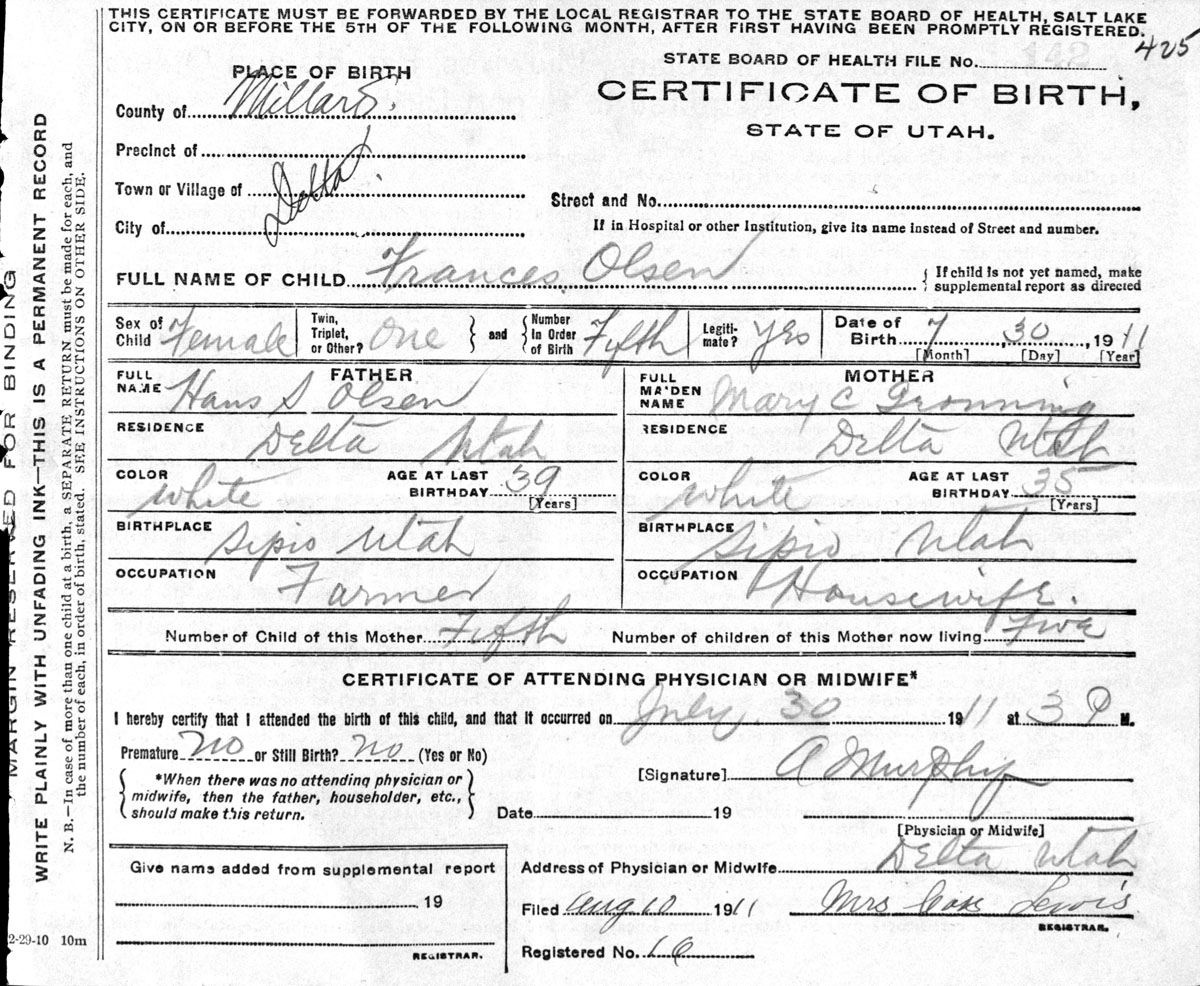 THIS CERTIFICATE MUST BE FORWARDED BY THE LOCAL REGISTRAR TO THE STATE BOARD OF HEALTH, SALT LAKE
CITY, ON OR BEFORE THE 5TH OF THE FOLLOWING MONTH, AFTER FIRST HAVING BEEN PROMPTLY REGISTERED.
425
STATE BOARD OF HEALTH FILE No.
CERTIFICATE OF BIRTH,
STATE OF UTAH.
PLACE OF BIRTH
County of Millard.
Precinct of
Town or Village of Delta
City of
Street and No.
If in Hospital or other Institution, give its name instead of Street and number.
FULL NAME OF CHILD Frances Olsen { If child is not yet named, make
supplemental report as directed
Sex of Child Female Twin, Triplet, or Other? One } and { Number In Order of Birth Fifth Legiti-mate? Yes Date of Birth 7, 30, 1911
[Month] [Day] [Year]
FATHER
FULL NAME Hans S Olsen
RESIDENCE Delta Utah
COLOR White AGE AT LAST BIRTHDAY 39 [Years]
BIRTHPLACE Sipio Utah
OCCUPATION Farmer
MOTHER
FULL MAIDEN NAME Mary C Gronning
RESIDENCE Delta Utah
COLOR White AGE AT LAST BIRTHDAY 35 [Years]
BIRTHPLACE Sipio Utah
OCCUPATION Housewife.
Number of Child of this Mother Fifth Number of children of this Mother now living Five
CERTIFICATE OF ATTENDING PHYSICIAN OR MIDWIFE*
I hereby certify that I attended the birth of this child, and that it occurred on July 30 1911 at 3 P M.
Premature No or Still Birth? No (Yes or No)
*When there was no attending physician or
midwife, then the father, householder, etc.,
should make this return.
[Signature] A Murphy
Date 19
[Physician or Midwife]
Address of Physician or Midwife Delta Utah
Filed Aug 10 1911 Mrs Lewis
REGISTRAR.
Registered No. 16
Give name added from supplemental report
19
REGISTRAR.
MARGIN RESERVED FOR BINDING
WRITE PLAINLY WITH UNFADING INK—THIS IS A PERMANENT RECORD
N. B.—In case of more than one child at a birth, a SEPARATE RETURN must be made for each, and
the number of each, in order of birth, stated. SEE INSTRUCTIONS ON OTHER SIDE.
2-29-10 10m